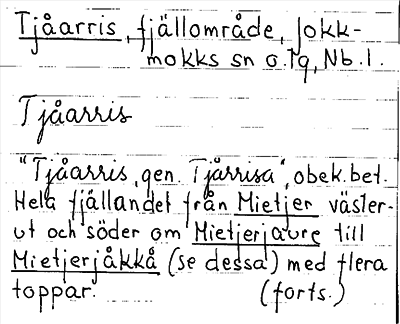 Tjåarris, fjällområde, Jokk-
mokks sn o. tg, Nb. l.
Tjåarris
"Tjåarris, gen. Tjårrisa", obek. bet.
Hela fjällandet från Mietjer väster-
ut och söder om Mietjerjaure till
Mietjerjåkkå (se dessa) med flera
toppar. (forts.)